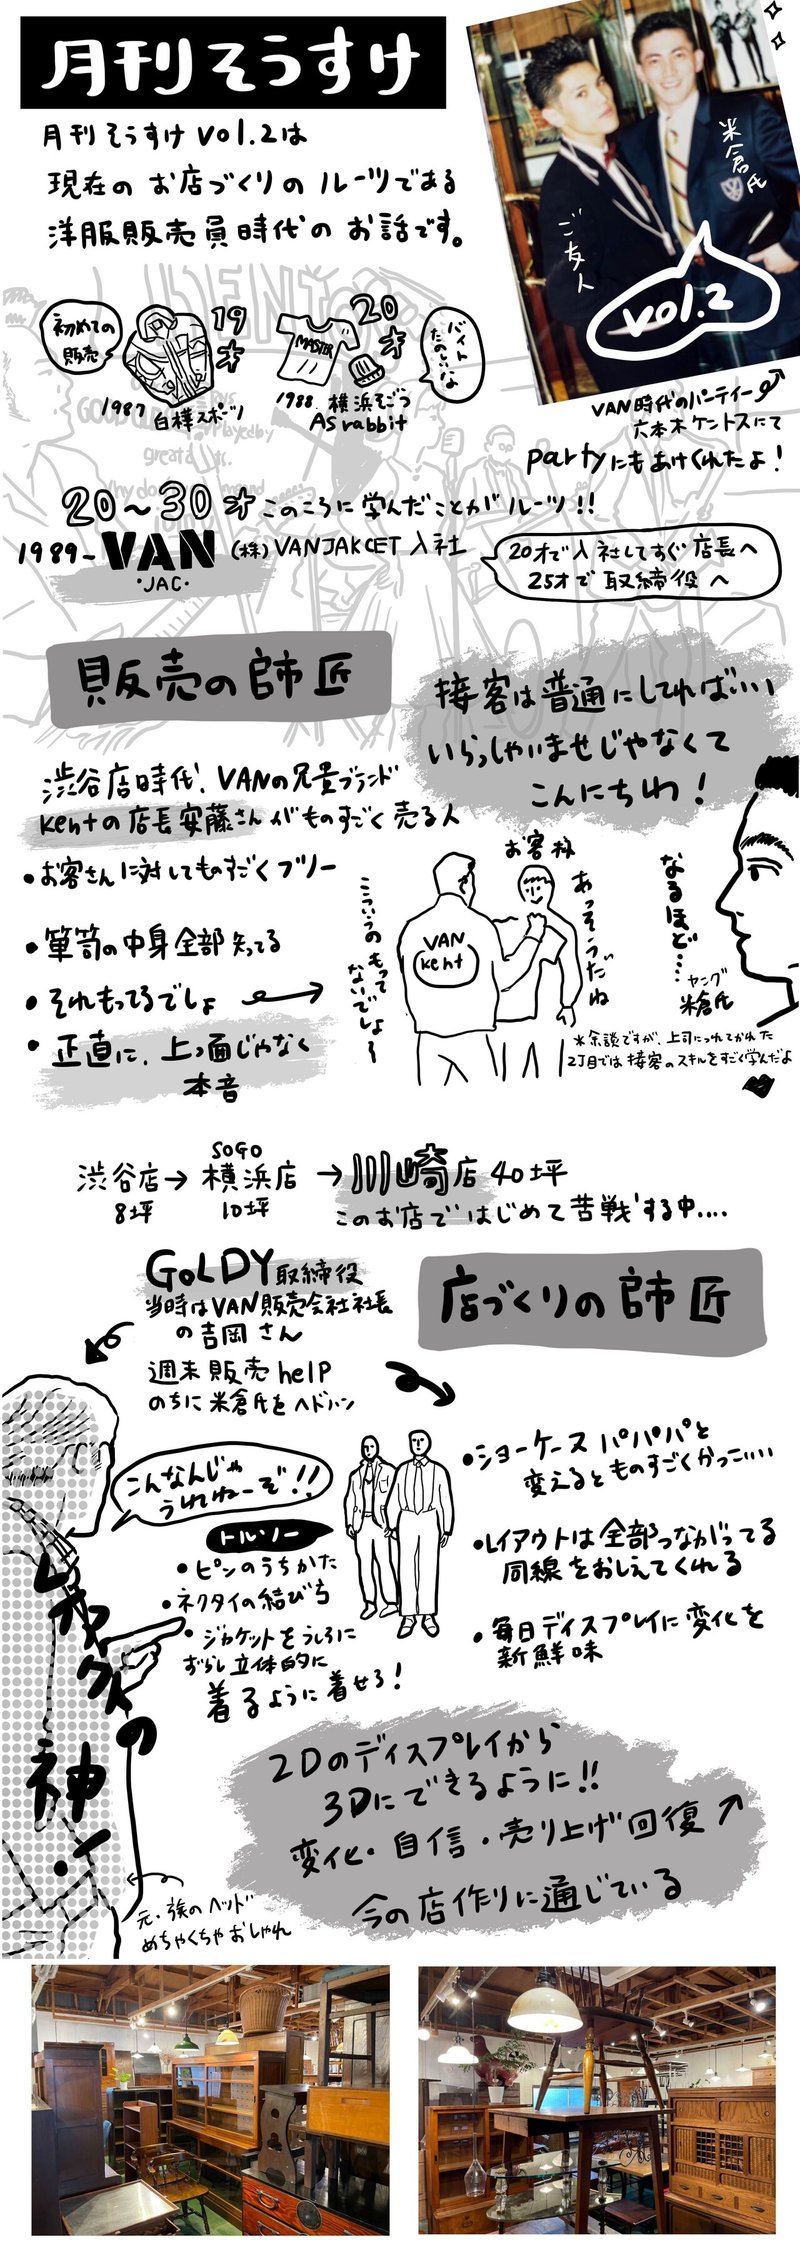 月刊そうすけ
月刊そうすけ vol.2は
現在の お店づくりの ルーツである
洋服販売員時代の お話です。
米倉氏
ご友人
vol.2
VAN時代のパーティー
六本木ケントスにて
partyにもあけくれたよ!
初めての
販売
19才
1987 白樺スポーツ
MASTER
20才
1988 横浜そごう
AS rabbit
バイト
たのしいな
20〜30才 このころに学んだことがルーツ!!
1989- VAN (株)VANJAKCET 入社
・JAC・
20才で入社してすぐ店長へ
25才で取締役へ
販売の師匠
接客は普通にしてればいい
いらっしゃいませじゃなくて
こんにちわ!
渋谷店時代、VANの兄貴ブランド
kentの店長安藤さんがものすごく売る人
・お客さんに対してものすごくフリー
・箪笥の中身全部知ってる
・それもってるでしょ
・正直に、上っ面じゃなく
本音
こういうのもって
ないでしょ〜
お客様
VAN
kent
あっそうだね
なるほど……
ヤング
米倉氏
※余談ですが、上司につれてかれた
2丁目では接客のスキルをすごく学んだよ
渋谷店→横浜店→川崎店 40坪
SOGO
8坪 10坪
このお店ではじめて苦戦する中....
GoLDY取締役
当時はVAN販売会社社長
の吉岡さん
週末販売help
のちに米倉氏をヘドハン
店づくりの師匠
こんなんじゃ
うれねーぞ!!
トルソー
・ピンのうちかた
・ネクタイの結び方
・ジャケットをうしろに
ずらし立体的に
着るように着せろ!
・ショーケース パパパと
変えるとものすごくかっこいい
・レイアウトは全部つながってる
同線をおしえてくれる
・毎日ディスプレイに変化を
新鮮味
レイアウトの
神・!
元・族のヘッド
めちゃくちゃおしゃれ
2Dのディスプレイから
3Dにできるように!!
変化・自信・売り上げ回復↗
今の店作りに通じている